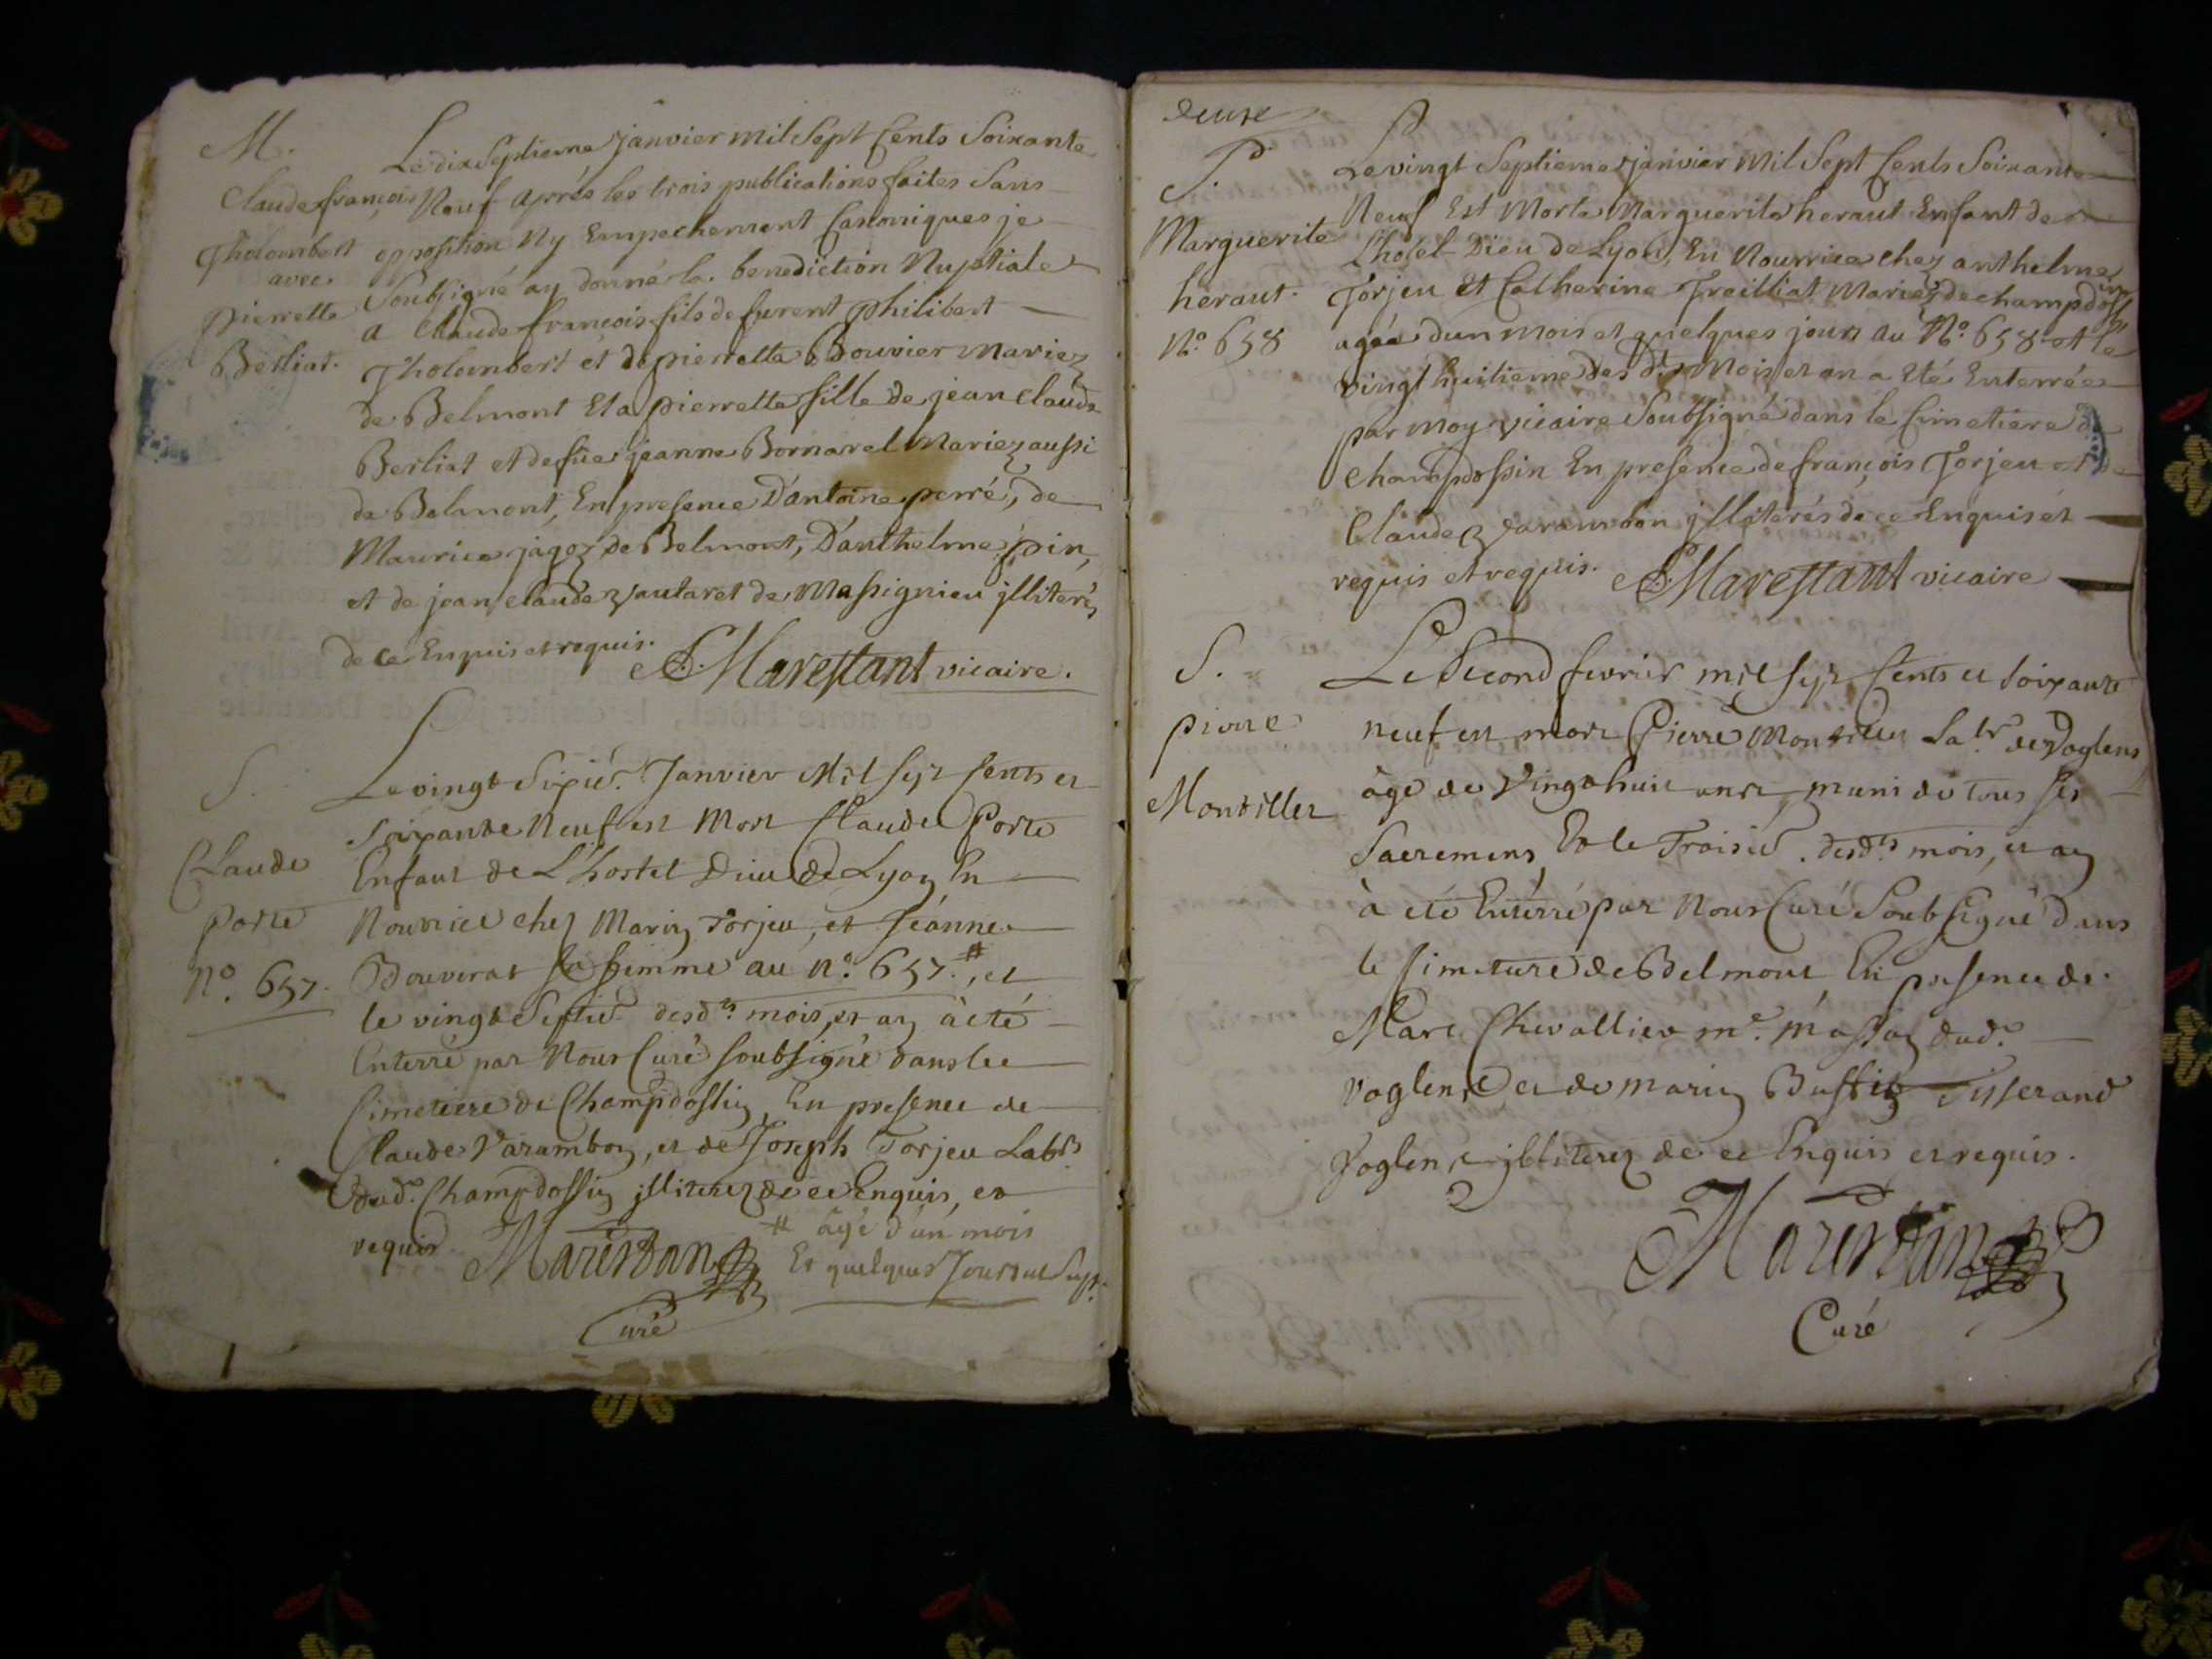 M.
Claude françois
Tholombert
avec
pierrette
Berliat.
Le dix Septieme janvier mil Sept Cents Soixante
Neuf après les trois publications faites Sans
opposition Ny Empechement Canoniques je
Soubsigné ay donné la benediction Nuptiale
a Claude françois fils de furent Philibert
Tholombert et de pierrette Bouvier mariez
de Belmont Et a pierrette fille de jean Claude
Berliat et de füe jeanne Bornarel Mariez aussi
de Belmont, En presence D'antoine perré, de
Maurice jagoz de Belmont, D'anthelme pin,
et de jean claude vautaret de Massignieu jlliterés
de ce Enquis et requis.
Marestant vicaire.
S.
Claude
porte
No. 657.
Le vingt Sixië. Janvier Mil Sept Cents et
Soixante Neuf est Mort Claude Porte
Enfant de L'hostel Dieu de Lyon En
Nourrice chez Marin Torjeu, et Jéanne
Bouverat sa femme au no. 657.#, et
le vingt Septië desd.ts mois, et an à été
Enterré par Nous Curé soubsigné dans le
Cimetiere de Champdossin, En presence de
Claude Varambon, et de Joseph Torjeu Lab.rs
dud. Champdossin jlliterez de ce Enquis, et
requis.
# âgé d'un mois
Et quelques Jours
Marestan
Curé
deuxe
S.
Marguerite
heraut.
No. 658
Le vingt Septieme janvier Mil Sept Cents Soixante
Neuf Est Morte Marguerite heraut Enfant de
L'hotel-Dieu de Lyon, En Nourrice chez anthelme
Torjeu Et Catherine Treilliat Mariez de champdossin
agée dun mois et quelques jours au No. 658 et le
vingt huitieme des d.ts Mois et an a Eté Enterrée
par moy vicaire Soubsigné dans le Cimetiere de
Champdossin En presence de françois Torjeu et de
Claude varambon jlliterés de ce Enquis et
requis et requis. Marestant vicaire
S.
pierre
Montillet
Le Second fevrier mil sept Cents et soixante
neuf est mort Pierre Montillet Lab.r de Voglens
âgé de Vingt huit ans, muni de tous ses
Sacremens, Et le Troisië. desd.ts mois, et an
à été Enterré par Nous Curé Soubsigné dans
le Cimetiere de Belmont, En presence de
Marc Chevallier m.e masson dud.
Voglens et de marin Bussin Tisserand
Voglens jlliterez de ce Enquis et requis.
Marestan
Curé